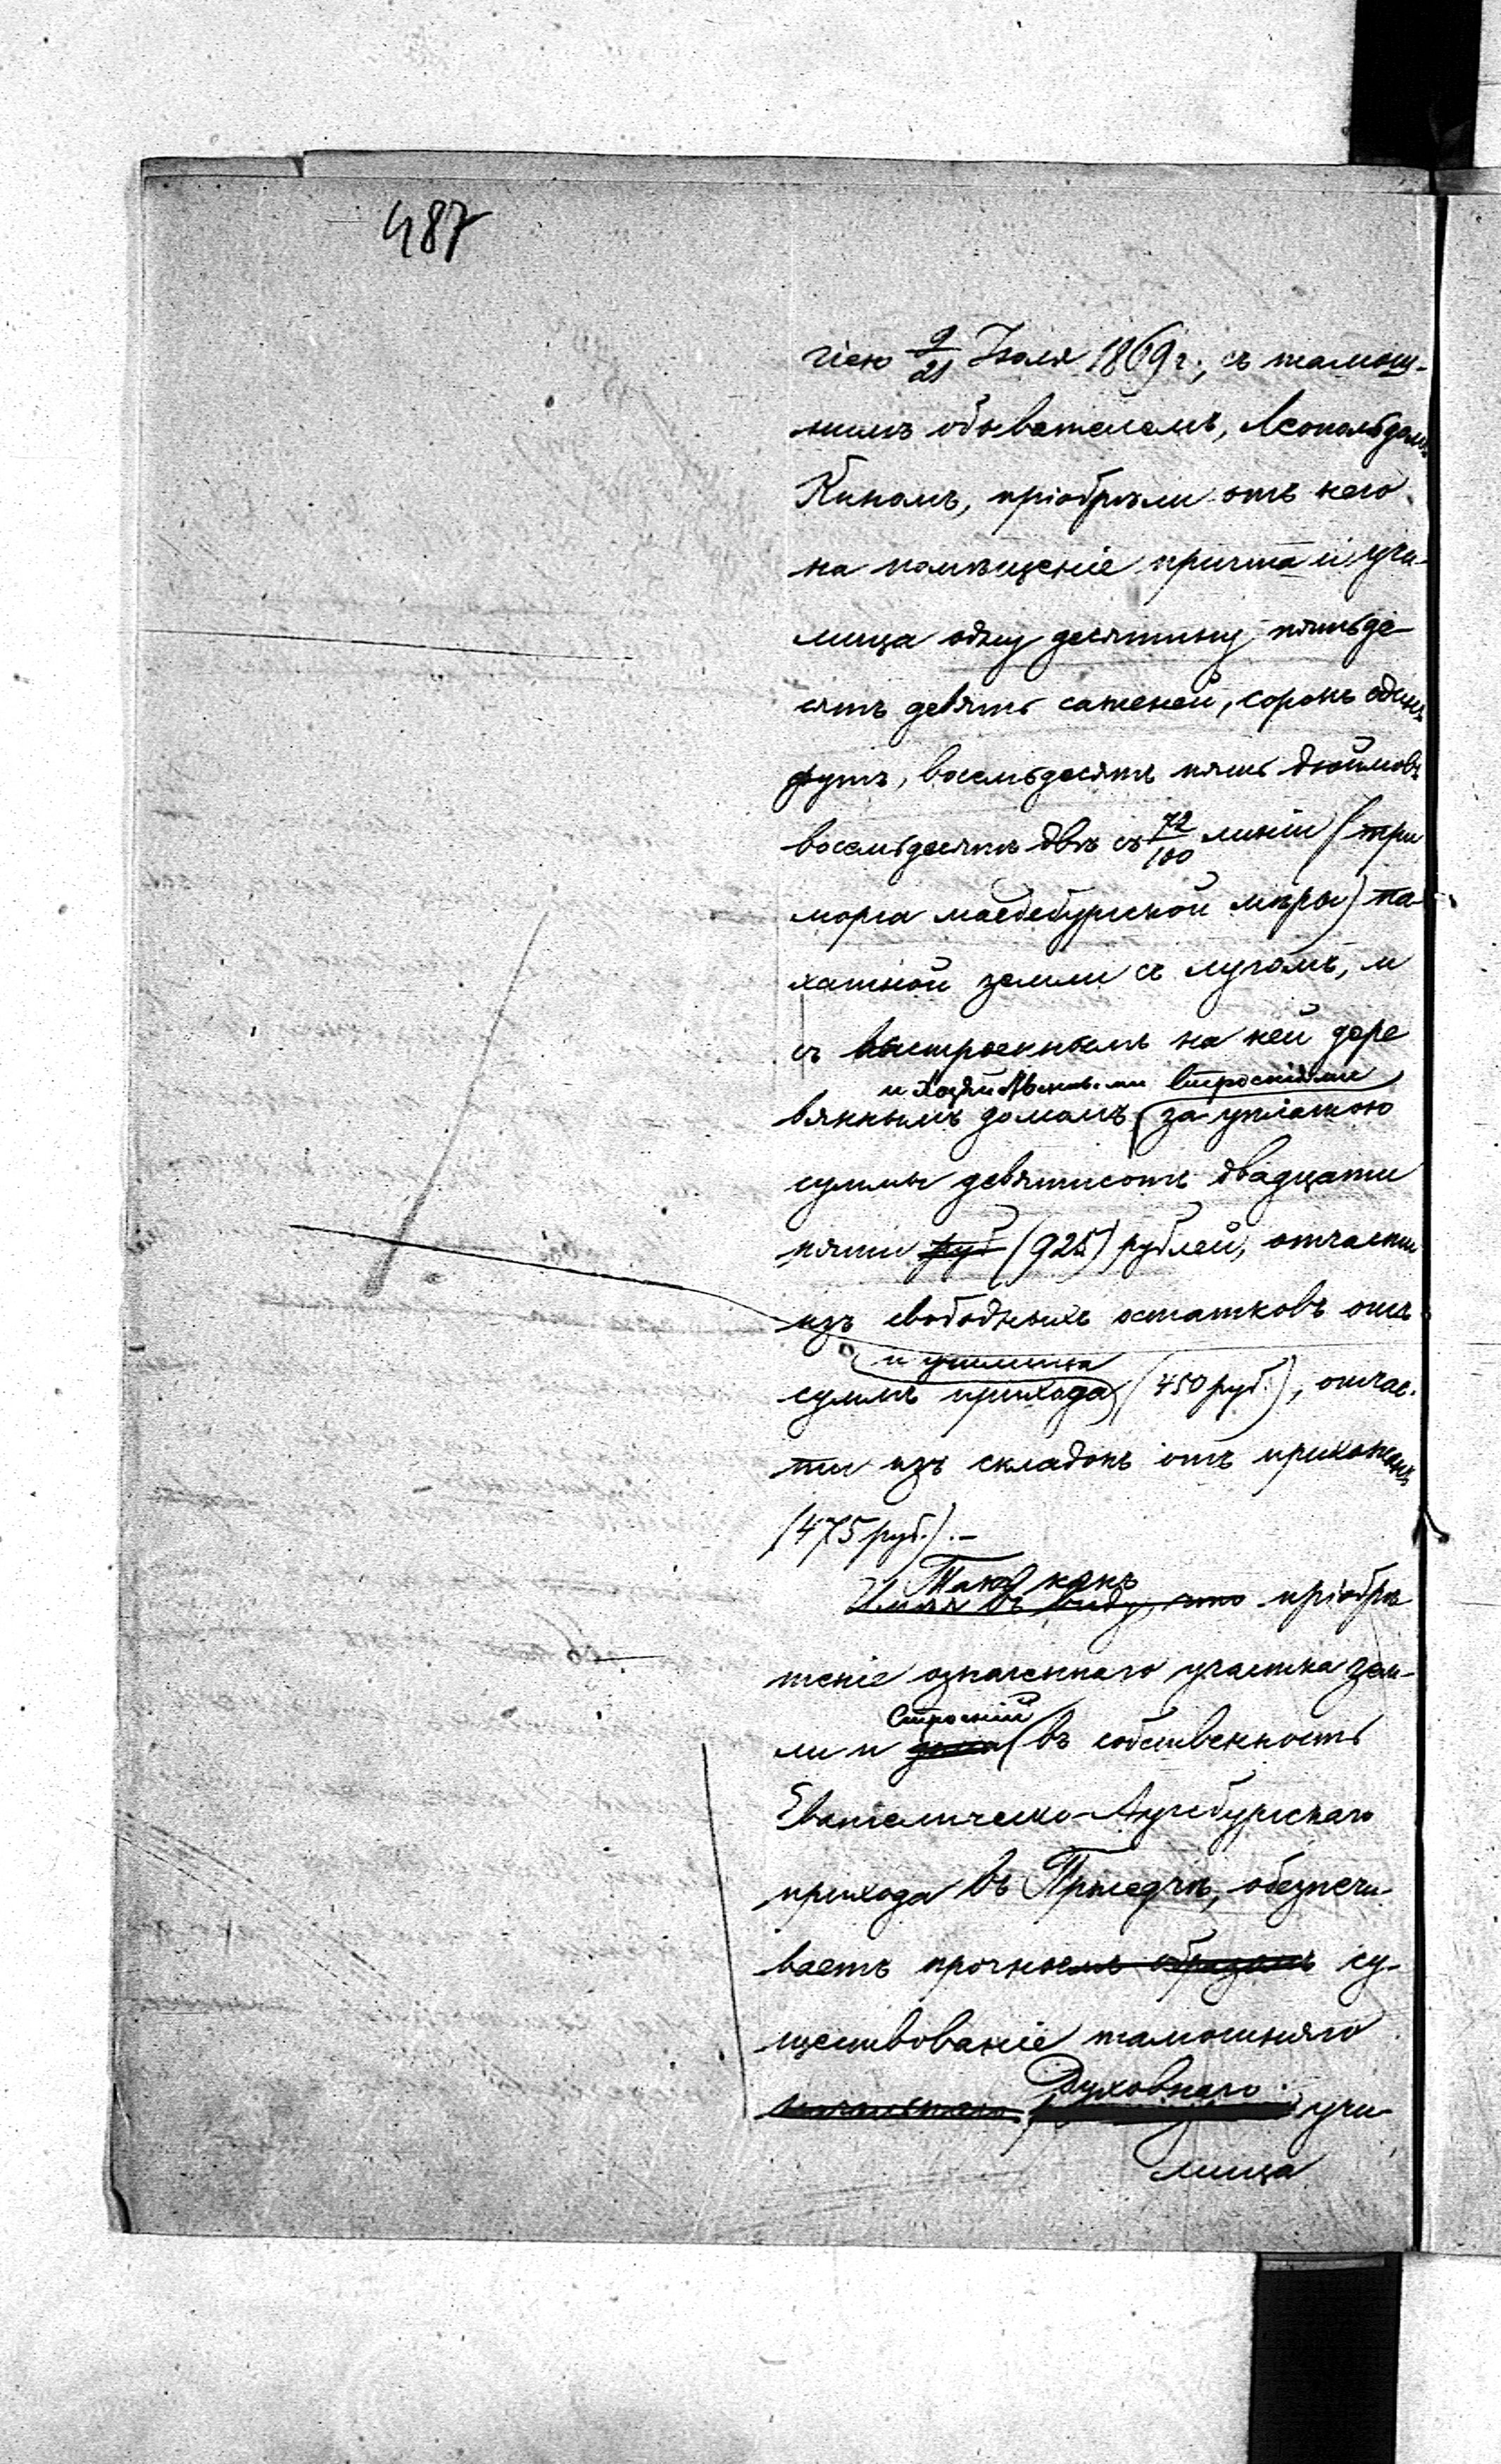 487
гіею 9/21 Іюля 1869 г., съ тамош-
нимъ обывателемъ, Леопольдомъ
Киномъ, пріобрѣли отъ него
на помѣщеніе причта и учи-
лища одну десятину, пятьде-
сятъ девять саженей, сорокъ одинъ
футъ, восемьдесятъ пять дюймовъ
восемьдесятъ двѣ съ 72/100 линіи (три
морга магдебургской мѣры) па-
хатной земли съ лугомъ, и
съ выстроеннымъ на ней дере
и хозяйственными строеніями
вяннымъ домомъ за уплатою
суммы девятисотъ двадцати
пяти руб (925) рублей, отчасти
изъ свободныхъ остатковъ отъ
и училища
суммъ прихода (450 руб.), отчас-
ти изъ складокъ отъ прихожанъ
(475 руб.). –
Такъ какъ
Имѣя въ виду, что пріобрѣ
теніе означеннаго участка зем-
строеній
ли и дома въ собственность
Евангелическо-Аугсбургскаго
прихода въ Пржедчѣ, обезпечи-
ваетъ прочнымъ образомъ су-
ществованіе тамошняго
Духовнаго
учи-
лища